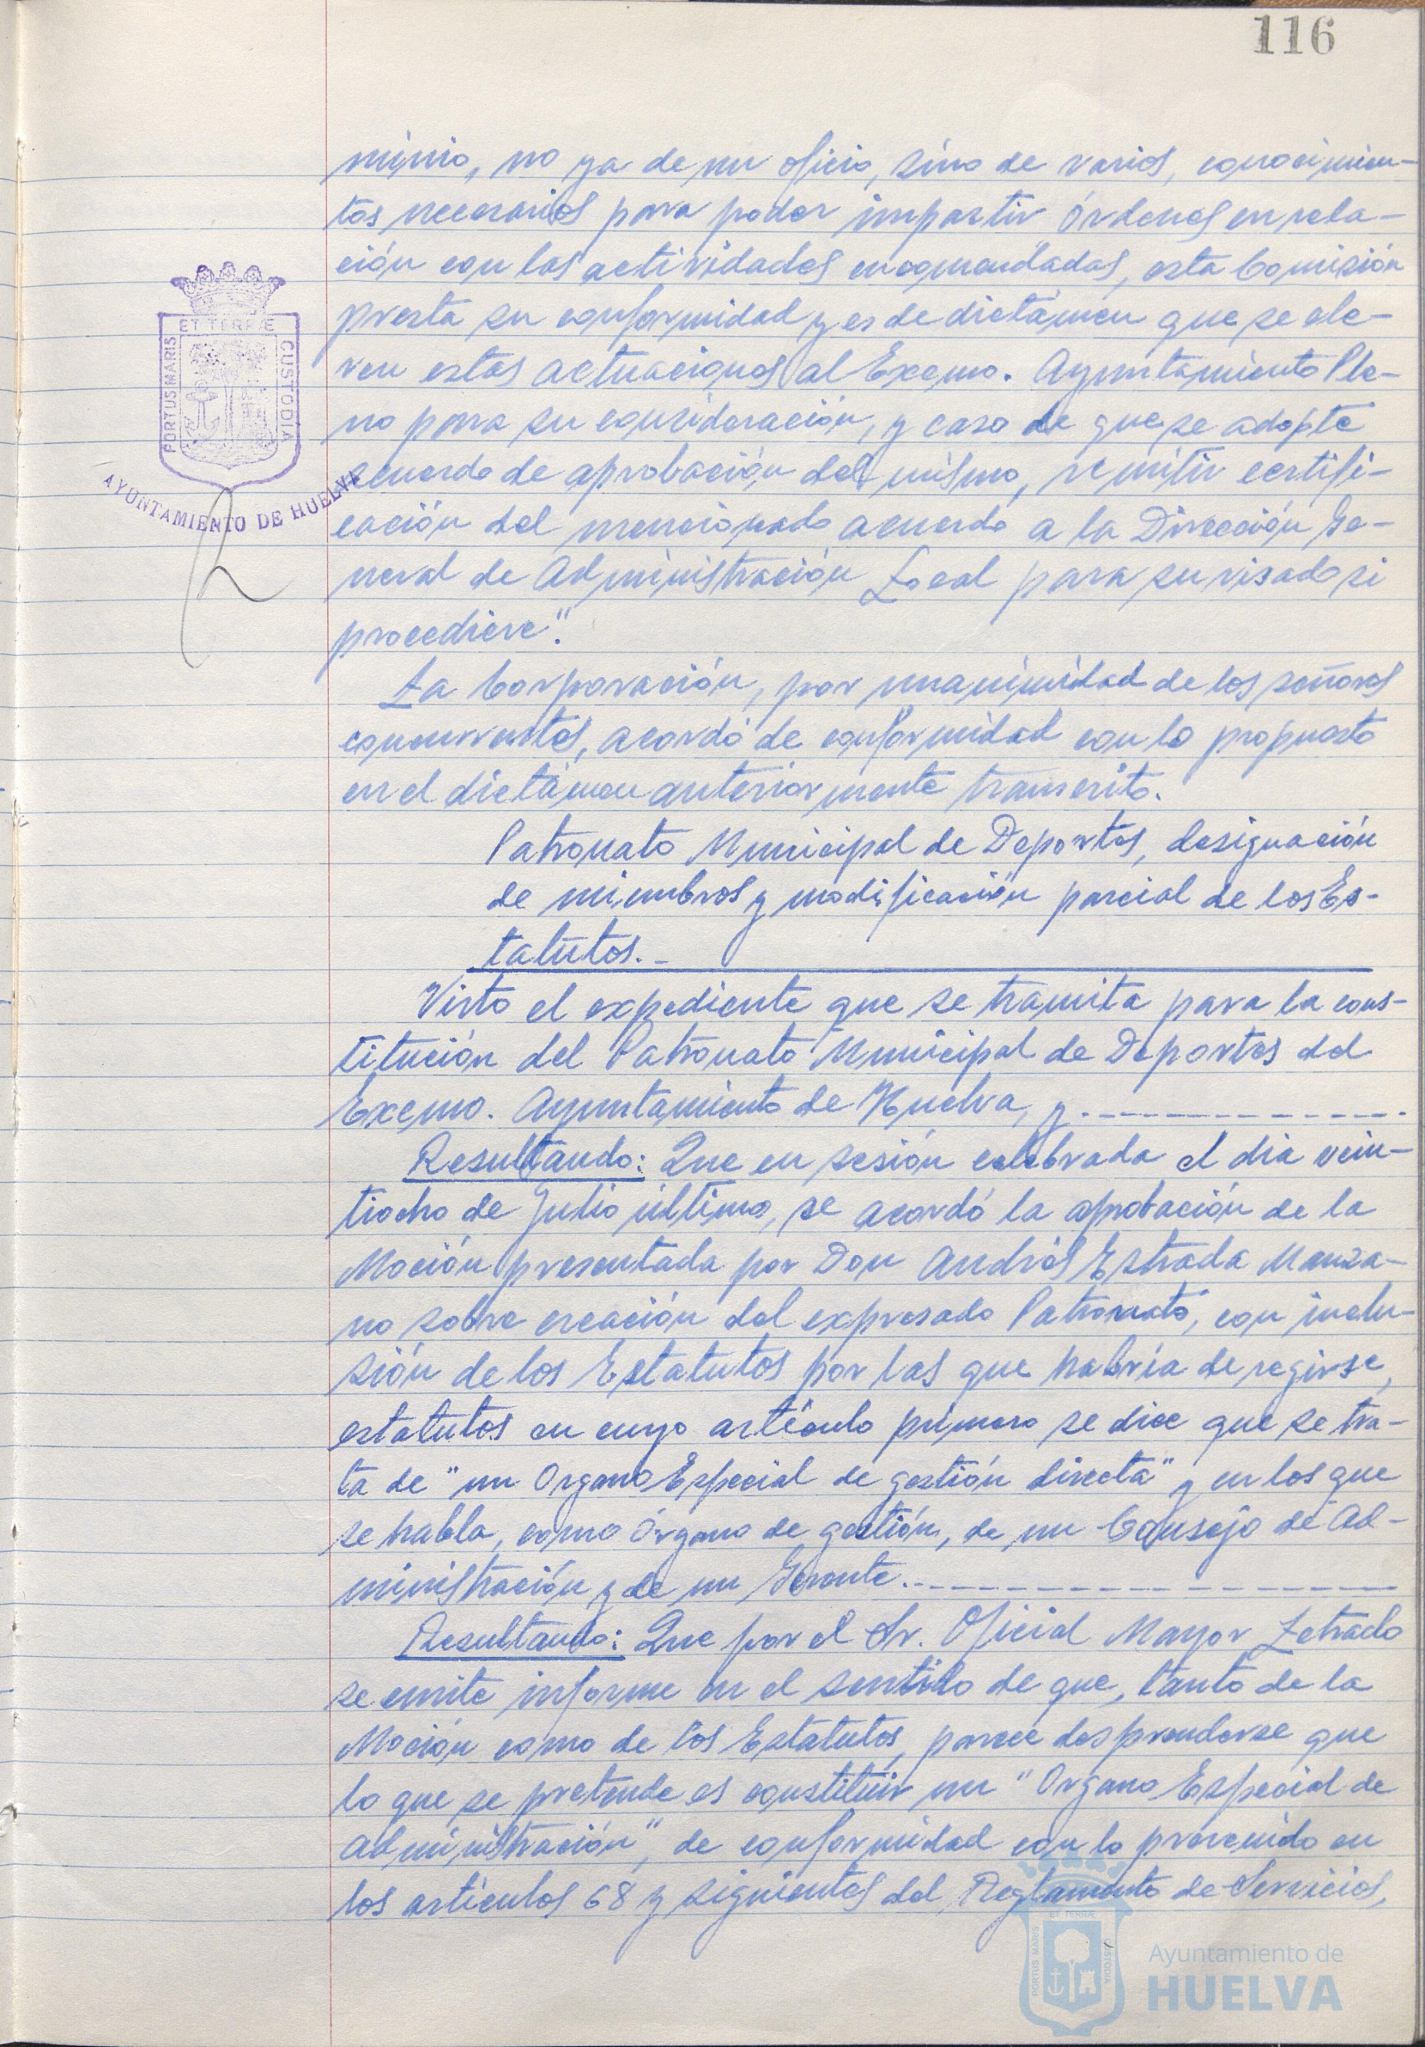 116
minio, no ya de un oficio, sino de varios, conocimien-
tos necesarios para poder impartir órdenes en rela-
ción con las actividades encomendadas, esta Comisión
presta su conformidad y es de dictámen que se ele-
ven estas actuaciones al Excmo. Ayuntamiento Ple-
no para su consideración, y caso de que se adopte
acuerdo de aprobación del mismo, remitir certifi-
cación del mencionado acuerdo a la Dirección Ge-
neral de Administración Local para su visado si
procediere".
La Corporación, por unanimidad de los señores
concurrentes, acordó de conformidad con lo propuesto
en el dictámen anteriormente transcrito.
Patronato Municipal de Deportes, designación
de miembros y modificación parcial de los Es-
tatutos.-
Visto el expediente que se tramita para la cons-
titución del Patronato Municipal de Deportes del
Excmo. Ayuntamiento de Huelva, y.
Resultando: Que en sesión celebrada el dia vein-
tiocho de Julio último, se acordó la aprobación de la
Moción presentada por Don Andrés Estrada Manza-
no sobre creación del expresado Patronato, con inclu-
sión de los Estatutos por las que habría de regirse,
estatutos en cuyo artículo primero se dice que se tra-
ta de "un Organo Especial de gestión directa" y en los que
se habla, como órgano de gestión, de un Consejo de Ad-
ministración y de un Gerente.
Resultando: Que por el Sr. Oficial Mayor Letrado
se emite informe en el sentido de que, tanto de la
Moción como de los Estatutos, parece desprenderse que
lo que se pretende es constituir un "Organo Especial de
Administración", de conformidad con lo prevenido en
los artículos 68 y siguientes del Reglamento de Servicios,
PORTUS MARIS ET TERRÆ CUSTODIA
AYUNTAMIENTO DE HUELVA
PORTUS MARIS ET TERRÆ CUSTODIA
Ayuntamiento de
HUELVA